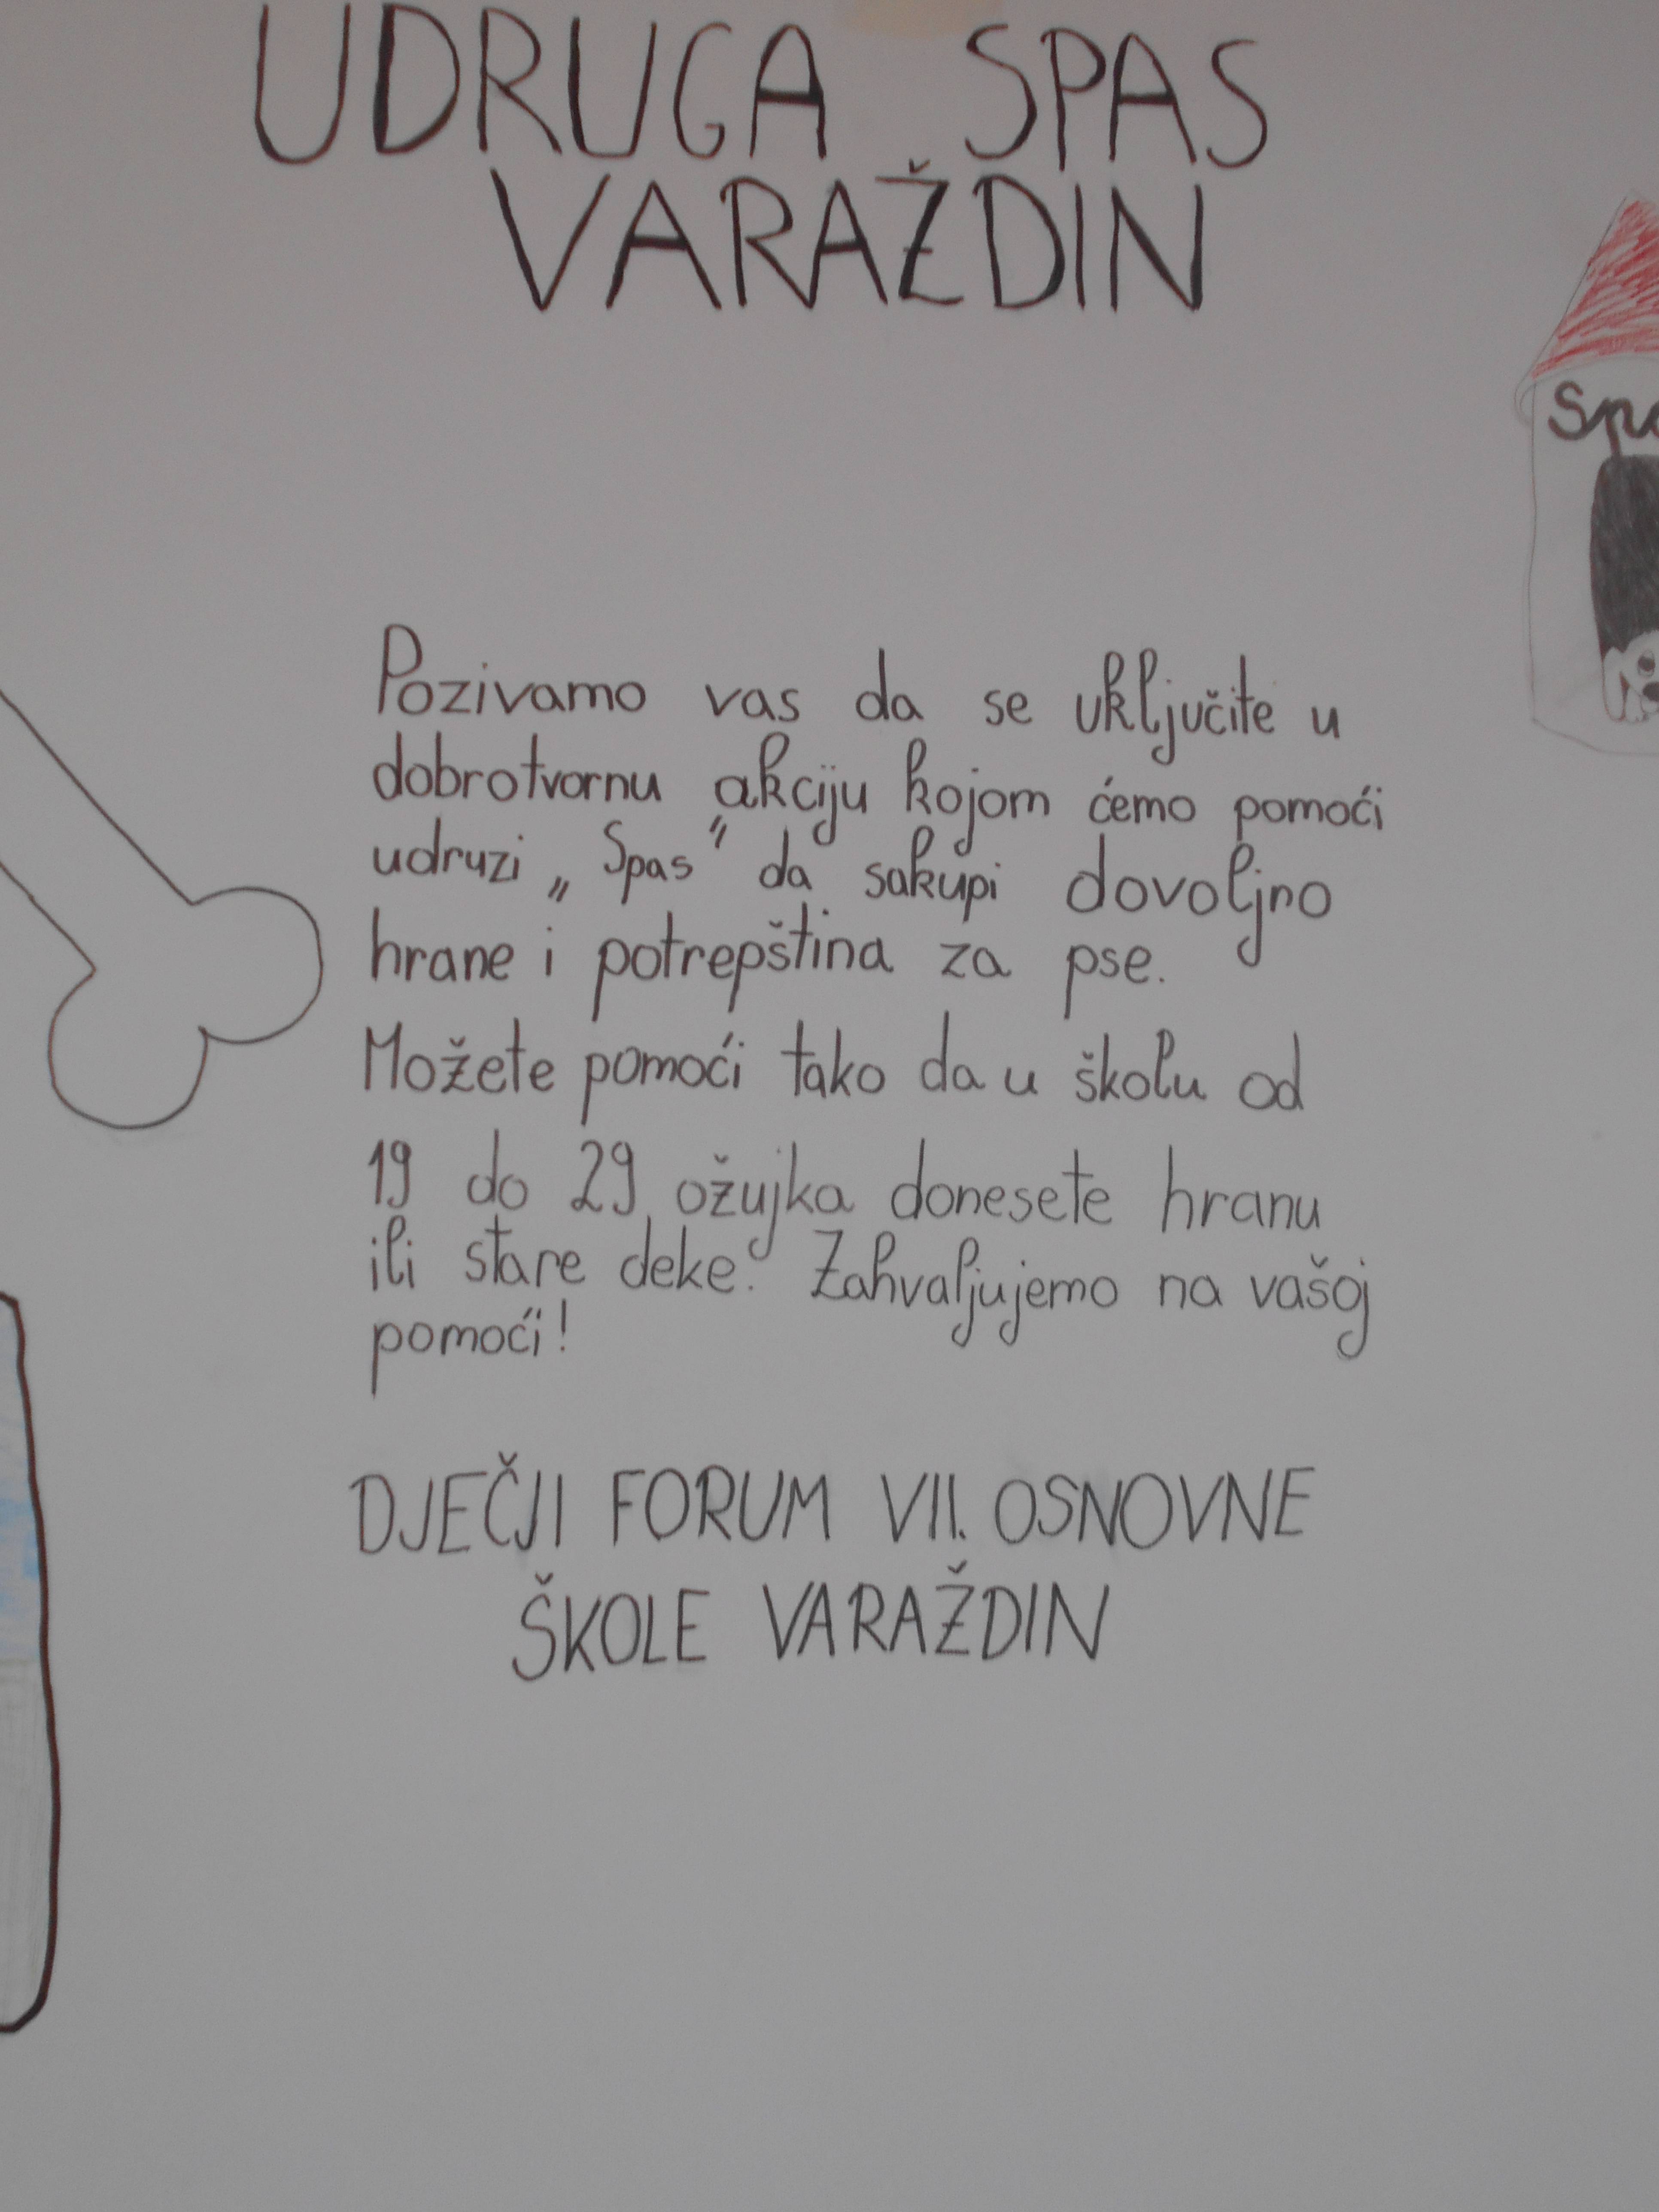 UDRUGA SPAS
VARAŽDIN
Spa
Pozivamo vas da se uključite u
dobrotvornu akciju kojom ćemo pomoći
udruzi „Spas" da sakupi dovoljno
hrane i potrepština za pse.
Možete pomoći tako da u školu od
19 do 29. ožujka donesete hranu
ili stare deke. Zahvaljujemo na vašoj
pomoći!
DJEČJI FORUM VII. OSNOVNE
ŠKOLE VARAŽDIN